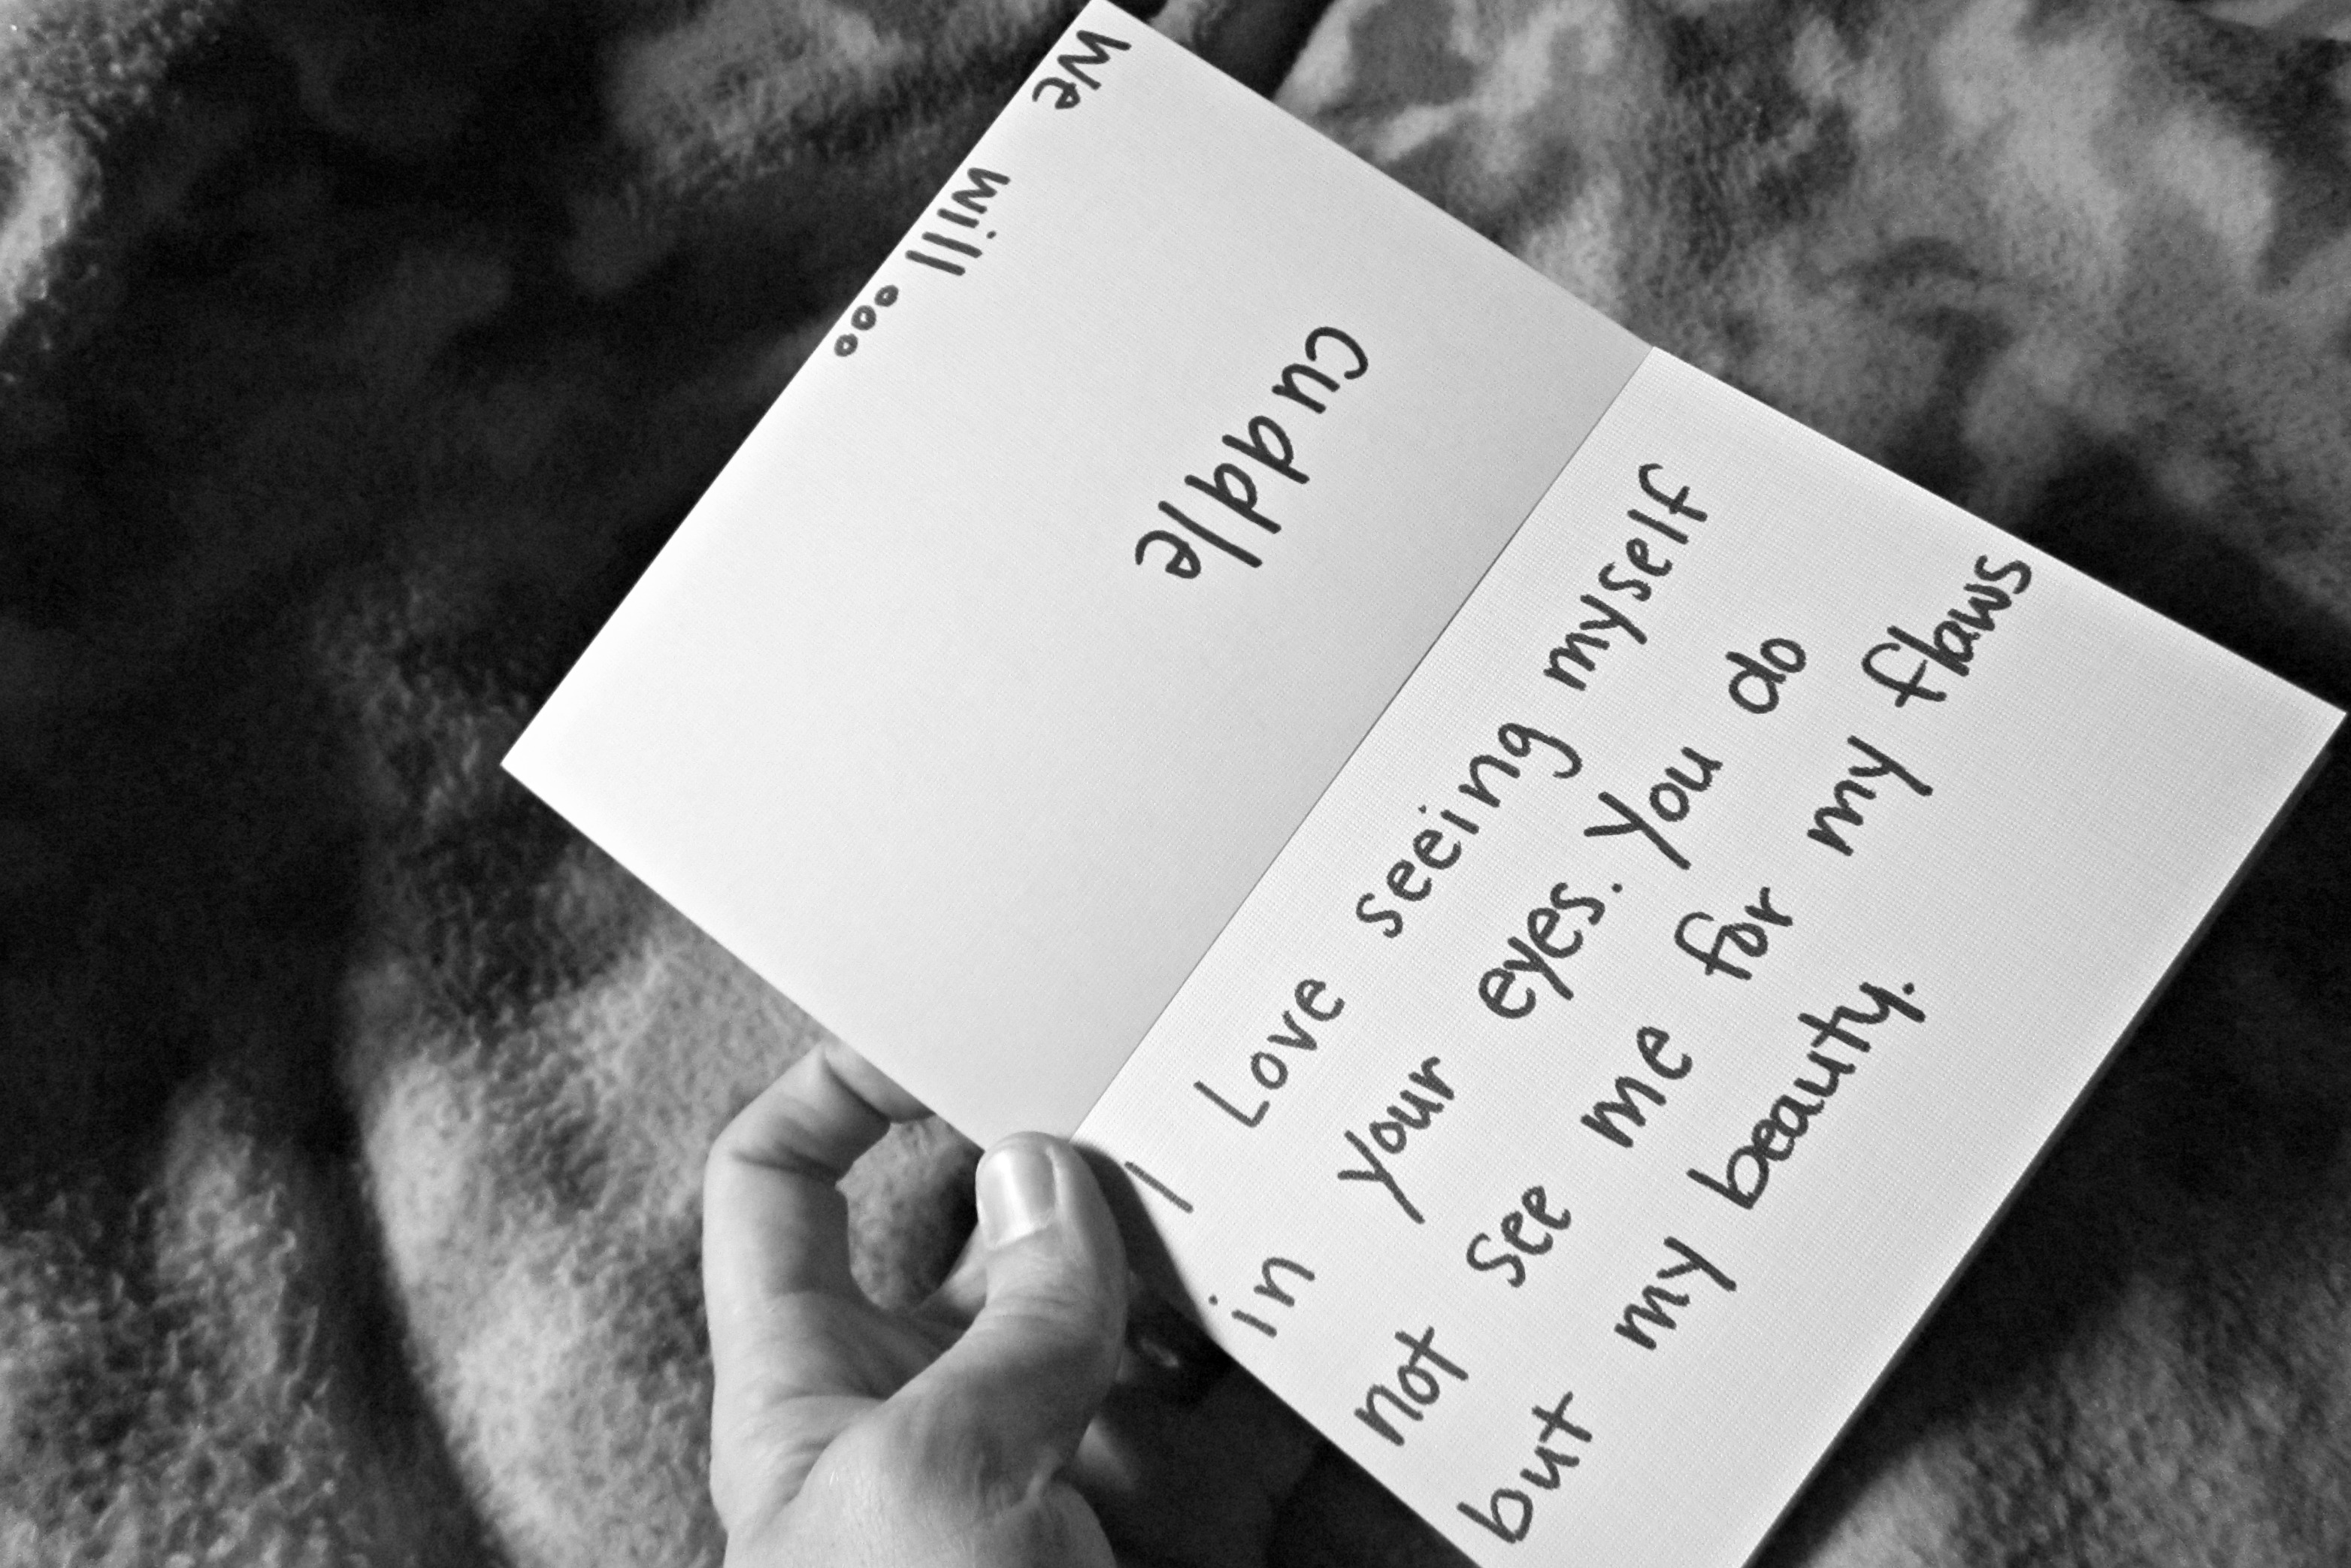 We will...
cuddle
I Love seeing myself
in your eyes. You do
not see me for my flaws
but my beauty.